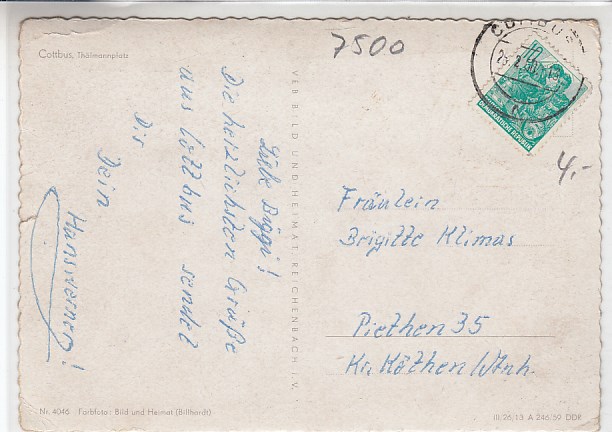 Cottbus, Thälmannplatz
7500
COTTBUS
DEMOKRATISCHE REPUBLIK
4,-
Liebe Biggi!
Die herzlichsten Grüße
aus Cottbus sendet
Dir
Dein
Hanswerner!
VEB BILD UND HEIMAT REICHENBACH i. V.
Fräulein
Brigitte Klimas
Piethen 35
Kr. Köthen / Anh.
Nr. 4046 Farbfoto: Bild und Heimat (Billhardt)
III/26/13 A 246/59 DDR